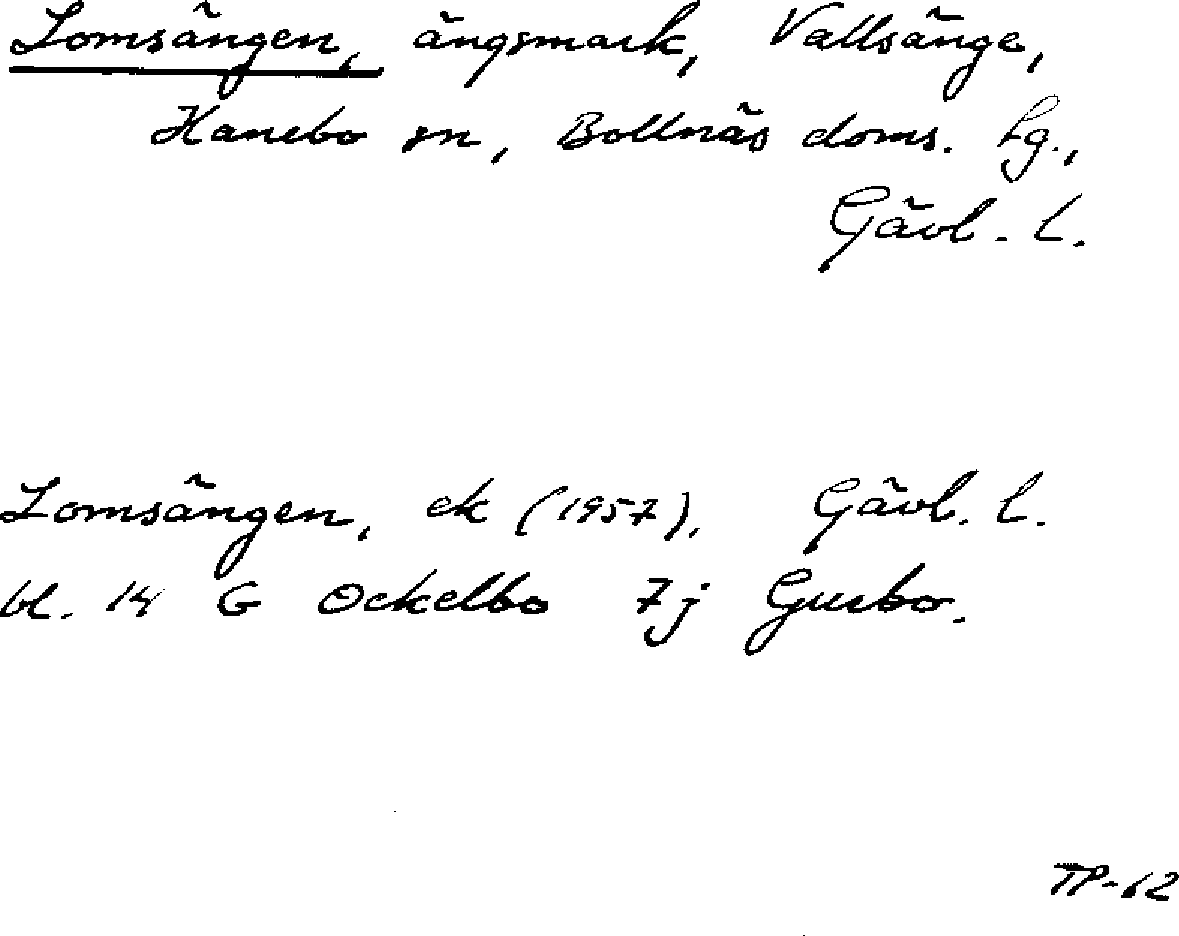 Lomsängen, ängsmark, Vallsänge,
Hanebo sn, Bollnäs doms. hg.,
Gävl. l.
Lomsängen, ek (1957), Gävl. l.
bl. 14 G Ockelbo 7j Gusbo.
TP-62